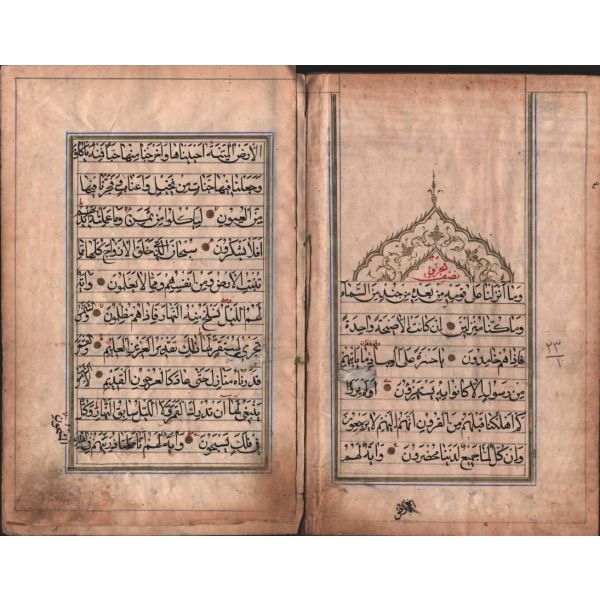 الجزء
نصف
وما أنزلنا على قومه من بعده من جند من السماء
وما كنا منزلين ان كانت الا صيحة واحدة
فاذا هم خامدون يا حسرة على العباد ما يأتيهم
من رسول الا كانوا به يستهزؤن اولم يروا
كم أهلكنا قبلهم من القرون انهم اليهم لا يرجعون
وان كل لما جميع لدينا محضرون وآية لهم
الأرض
٢٣
١
الأرض الميتة احييناها واخرجنا منها حبا فمنه يأكلون
وجعلنا فيها جنات من نخيل واعناب وفجرنا فيها
من العيون ليأكلوا من ثمره وما عملته ايديهم
افلا يشكرون سبحان الذي خلق الازواج كلها مما
تنبت الارض ومن انفسهم ومما لا يعلمون وآية
لهم الليل نسلخ منه النهار فاذا هم مظلمون والشمس
تجري لمستقر لها ذلك تقدير العزيز العليم والقمر
قدرناه منازل حتى عاد كالعرجون القديم لا الشمس
ينبغي لها أن تدرك القمر ولا الليل سابق النهار وكل
في فلك يسبحون وآية لهم أنا حملنا ذريتهم في الفلك
المشحون